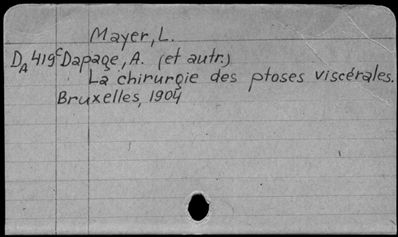 Mayer, L.
DA 419c Dapage, A. (et autr.)
La chirurgie des ptoses viscérales.
Bruxelles, 1904